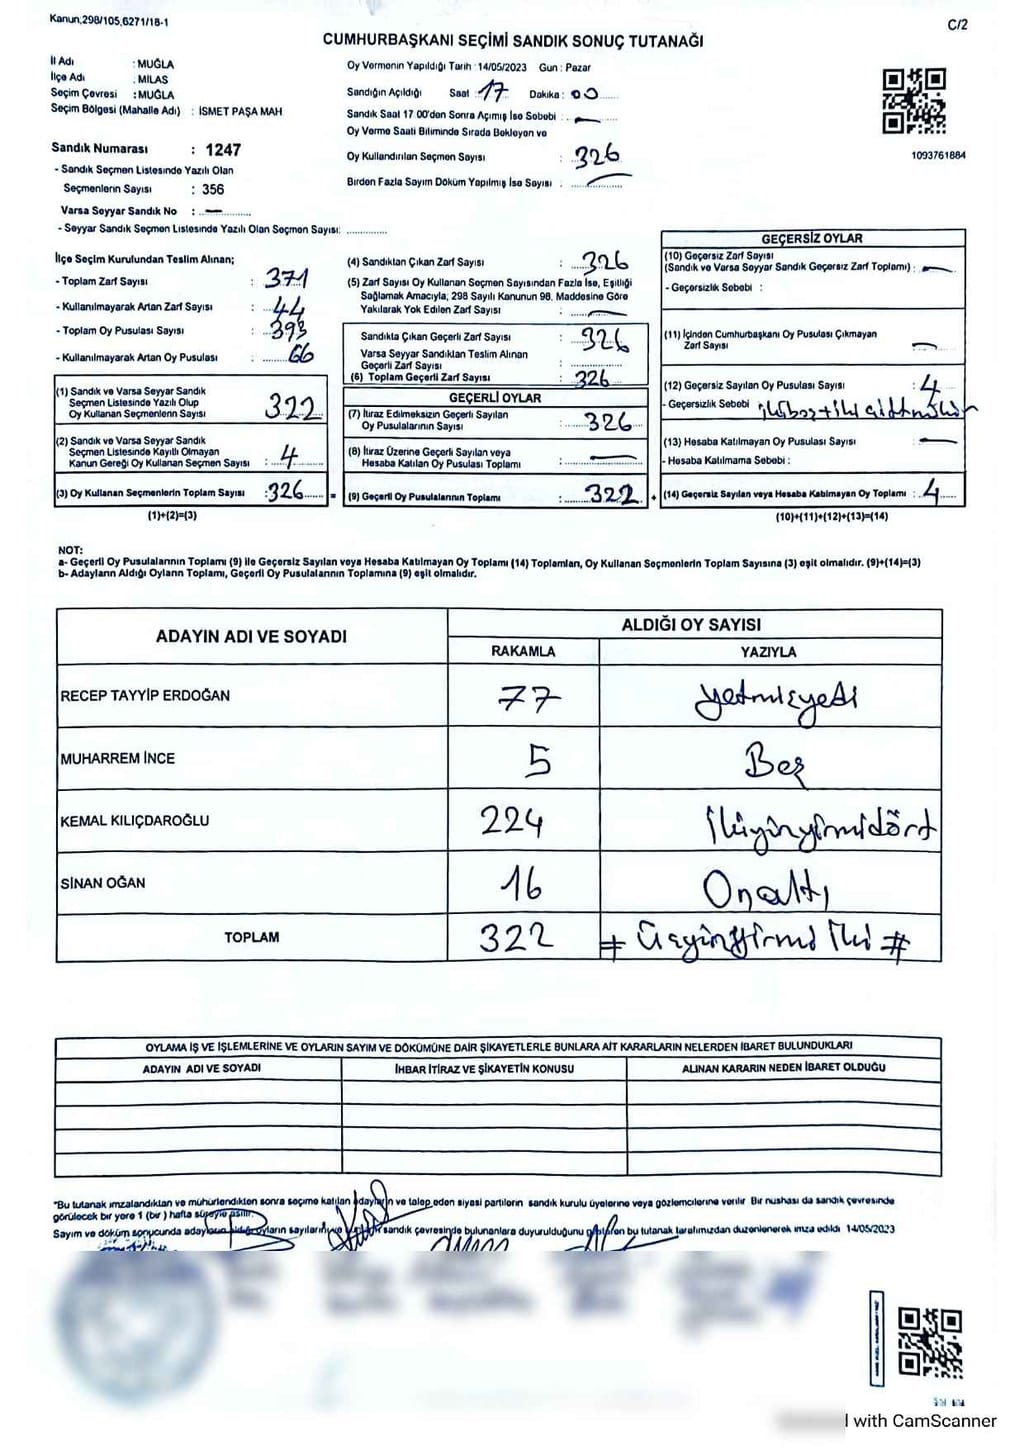 Kanun,298/105,6271/18-1
C/2
CUMHURBAŞKANI SEÇİMİ SANDIK SONUÇ TUTANAĞI
İl Adı : MUĞLA
İlçe Adı : MİLAS
Seçim Çevresi : MUĞLA
Seçim Bölgesi (Mahalle Adı) : İSMET PAŞA MAH
Sandık Numarası : 1247
- Sandık Seçmen Listesinde Yazılı Olan
Seçmenlerin Sayısı : 356
Varsa Seyyar Sandık No : —
- Seyyar Sandık Seçmen Listesinde Yazılı Olan Seçmen Sayısı:
Oy Vermenin Yapıldığı Tarih : 14/05/2023 Gun : Pazar
Sandığın Açıldığı Saat : 17 Dakika : 00
Sandık Saat 17 00'den Sonra Açımış İse Sebebi : —
Oy Verme Saati Bitiminde Sırada Bekleyen ve
Oy Kullandırılan Seçmen Sayısı : 326
Birden Fazla Sayım Döküm Yapılmış İse Sayısı : —
1093761884
İlçe Seçim Kurulundan Teslim Alınan;
- Toplam Zarf Sayısı : 371
- Kullanılmayarak Artan Zarf Sayısı : 44
- Toplam Oy Pusulası Sayısı : 393
- Kullanılmayarak Artan Oy Pusulası : 66
(1) Sandık ve Varsa Seyyar Sandık
Seçmen Listesinde Yazılı Olup
Oy Kullanan Seçmenlerin Sayısı 322
(2) Sandık ve Varsa Seyyar Sandık
Seçmen Listesinde Kayıtlı Olmayan
Kanun Gereği Oy Kullanan Seçmen Sayısı : 4
(3) Oy Kullanan Seçmenlerin Toplam Sayısı : 326 =
(1)+(2)=(3)
(4) Sandıktan Çıkan Zarf Sayısı : 326
(5) Zarf Sayısı Oy Kullanan Seçmen Sayısından Fazla İse, Eşitliği
Sağlamak Amacıyla, 298 Sayılı Kanunun 98. Maddesine Göre
Yakılarak Yok Edilen Zarf Sayısı : —
Sandıkta Çıkan Geçerli Zarf Sayısı : 326
Varsa Seyyar Sandıktan Teslim Alınan
Geçerli Zarf Sayısı :
(6) Toplam Geçerli Zarf Sayısı : 326
GEÇERLİ OYLAR
(7) İtiraz Edilmeksizin Geçerli Sayılan
Oy Pusulalarının Sayısı : 326
(8) İtiraz Üzerine Geçerli Sayılan veya
Hesaba Katılan Oy Pusulası Toplamı : —
(9) Geçerli Oy Pusulalarının Toplamı : 322 +
GEÇERSİZ OYLAR
(10) Geçersiz Zarf Sayısı
(Sandık ve Varsa Seyyar Sandık Geçersiz Zarf Toplamı) : —
- Geçersizlik Sebebi :
(11) İçinden Cumhurbaşkanı Oy Pusulası Çıkmayan
Zarf Sayısı —
(12) Geçersiz Sayılan Oy Pusulası Sayısı : 4
- Geçersizlik Sebebi :
(13) Hesaba Katılmayan Oy Pusulası Sayısı : —
- Hesaba Katılmama Sebebi :
(14) Geçersiz Sayılan veya Hesaba Katılmayan Oy Toplamı : 4
(10)+(11)+(12)+(13)=(14)
NOT:
a- Geçerli Oy Pusulalarının Toplamı (9) ile Geçersiz Sayılan veya Hesaba Katılmayan Oy Toplamı (14) Toplamları, Oy Kullanan Seçmenlerin Toplam Sayısına (3) eşit olmalıdır. (9)+(14)=(3)
b- Adayların Aldığı Oyların Toplamı, Geçerli Oy Pusulalarının Toplamına (9) eşit olmalıdır.
ADAYIN ADI VE SOYADI
ALDIĞI OY SAYISI
RAKAMLA YAZIYLA
RECEP TAYYİP ERDOĞAN 77 yetmişyedi
MUHARREM İNCE 5 Beş
KEMAL KILIÇDAROĞLU 224 İkiyüzyirmidört
SİNAN OĞAN 16 Onaltı
TOPLAM 322 # Üçyüzyirmi iki #
OYLAMA İŞ VE İŞLEMLERİNE VE OYLARIN SAYIM VE DÖKÜMÜNE DAİR ŞİKAYETLERLE BUNLARA AİT KARARLARIN NELERDEN İBARET BULUNDUKLARI
ADAYIN ADI VE SOYADI İHBAR İTİRAZ VE ŞİKAYETİN KONUSU ALINAN KARARIN NEDEN İBARET OLDUĞU
*Bu tutanak imzalandıktan ve mühürlendikten sonra seçime katılan adayların ve talep eden siyasi partilerin sandık kurulu üyelerine veya gözlemcilerine verilir Bir nushası da sandık çevresinde
görülecek bir yere 1 (bir) hafta süreyle asılır.
Sayım ve döküm sonucunda adayların aldığı oyların sayıları sandık çevresinde bulunanlara duyurulduğunu bu tutanak tarafımızdan düzenlenerek imza edildi 14/05/2023
with CamScanner